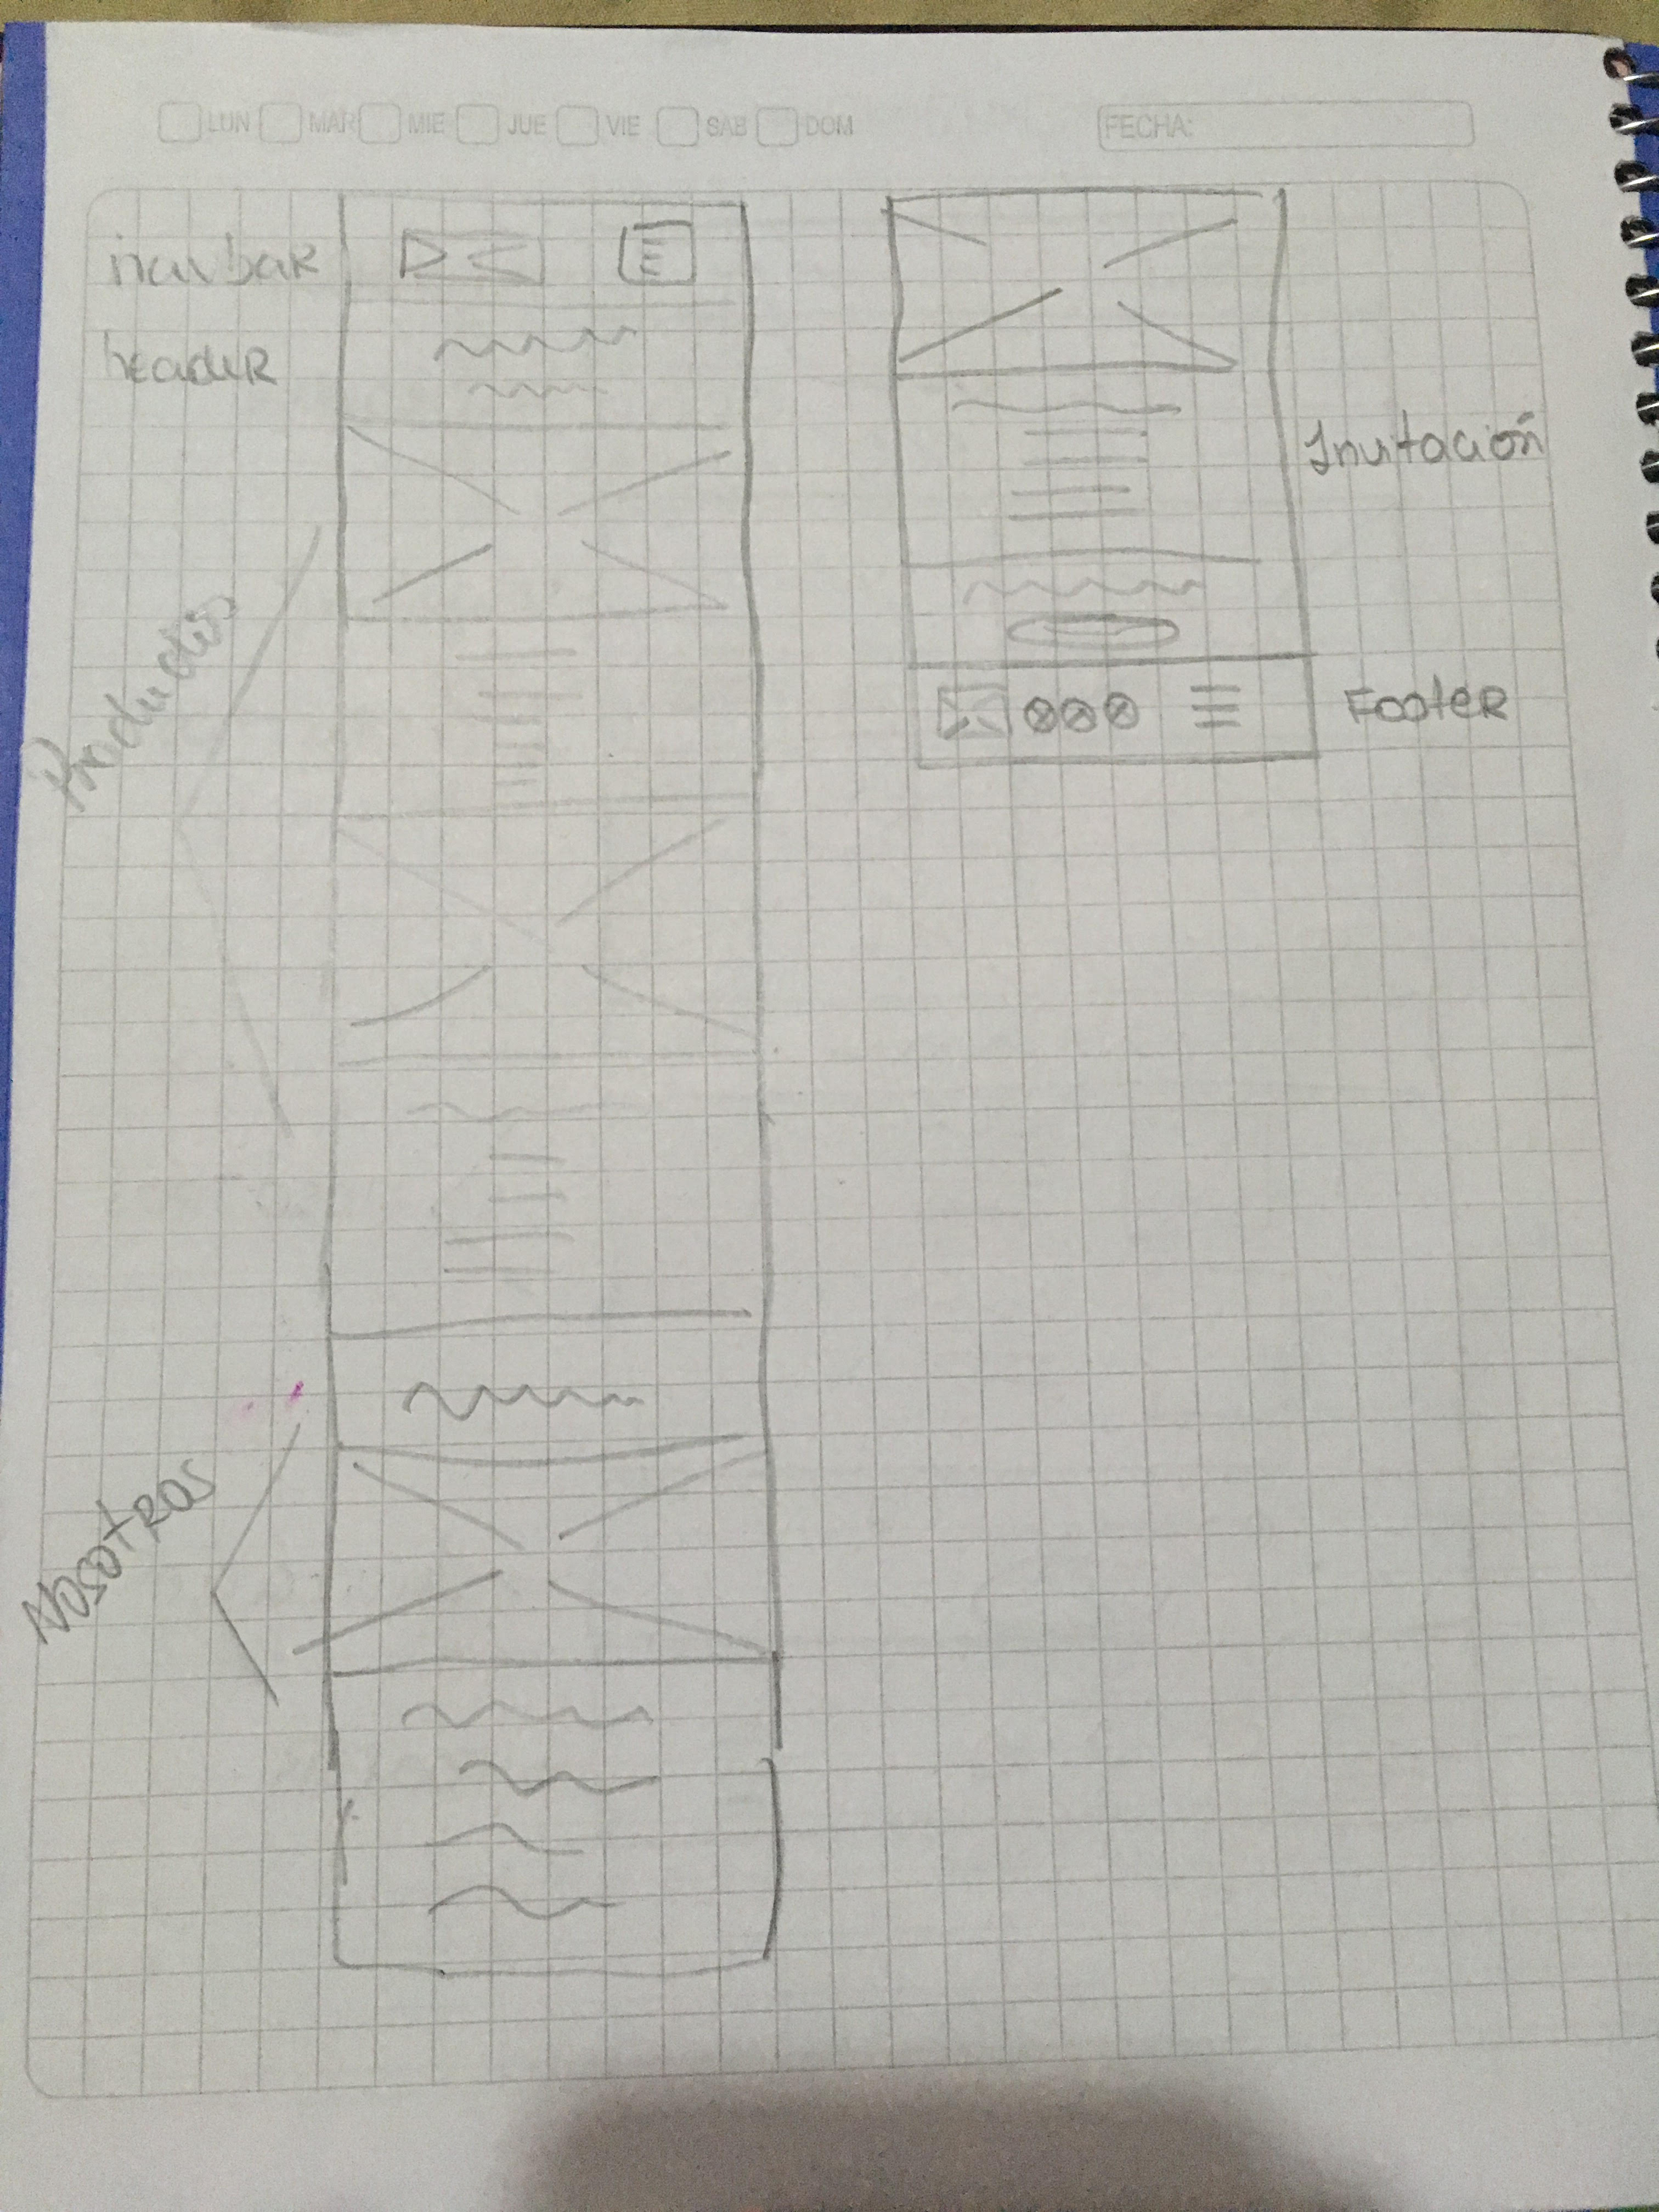 LUN MAR MIE JUE VIE SAB DOM
FECHA:
navbar
header
Productos
Nosotros
Invitación
Footer